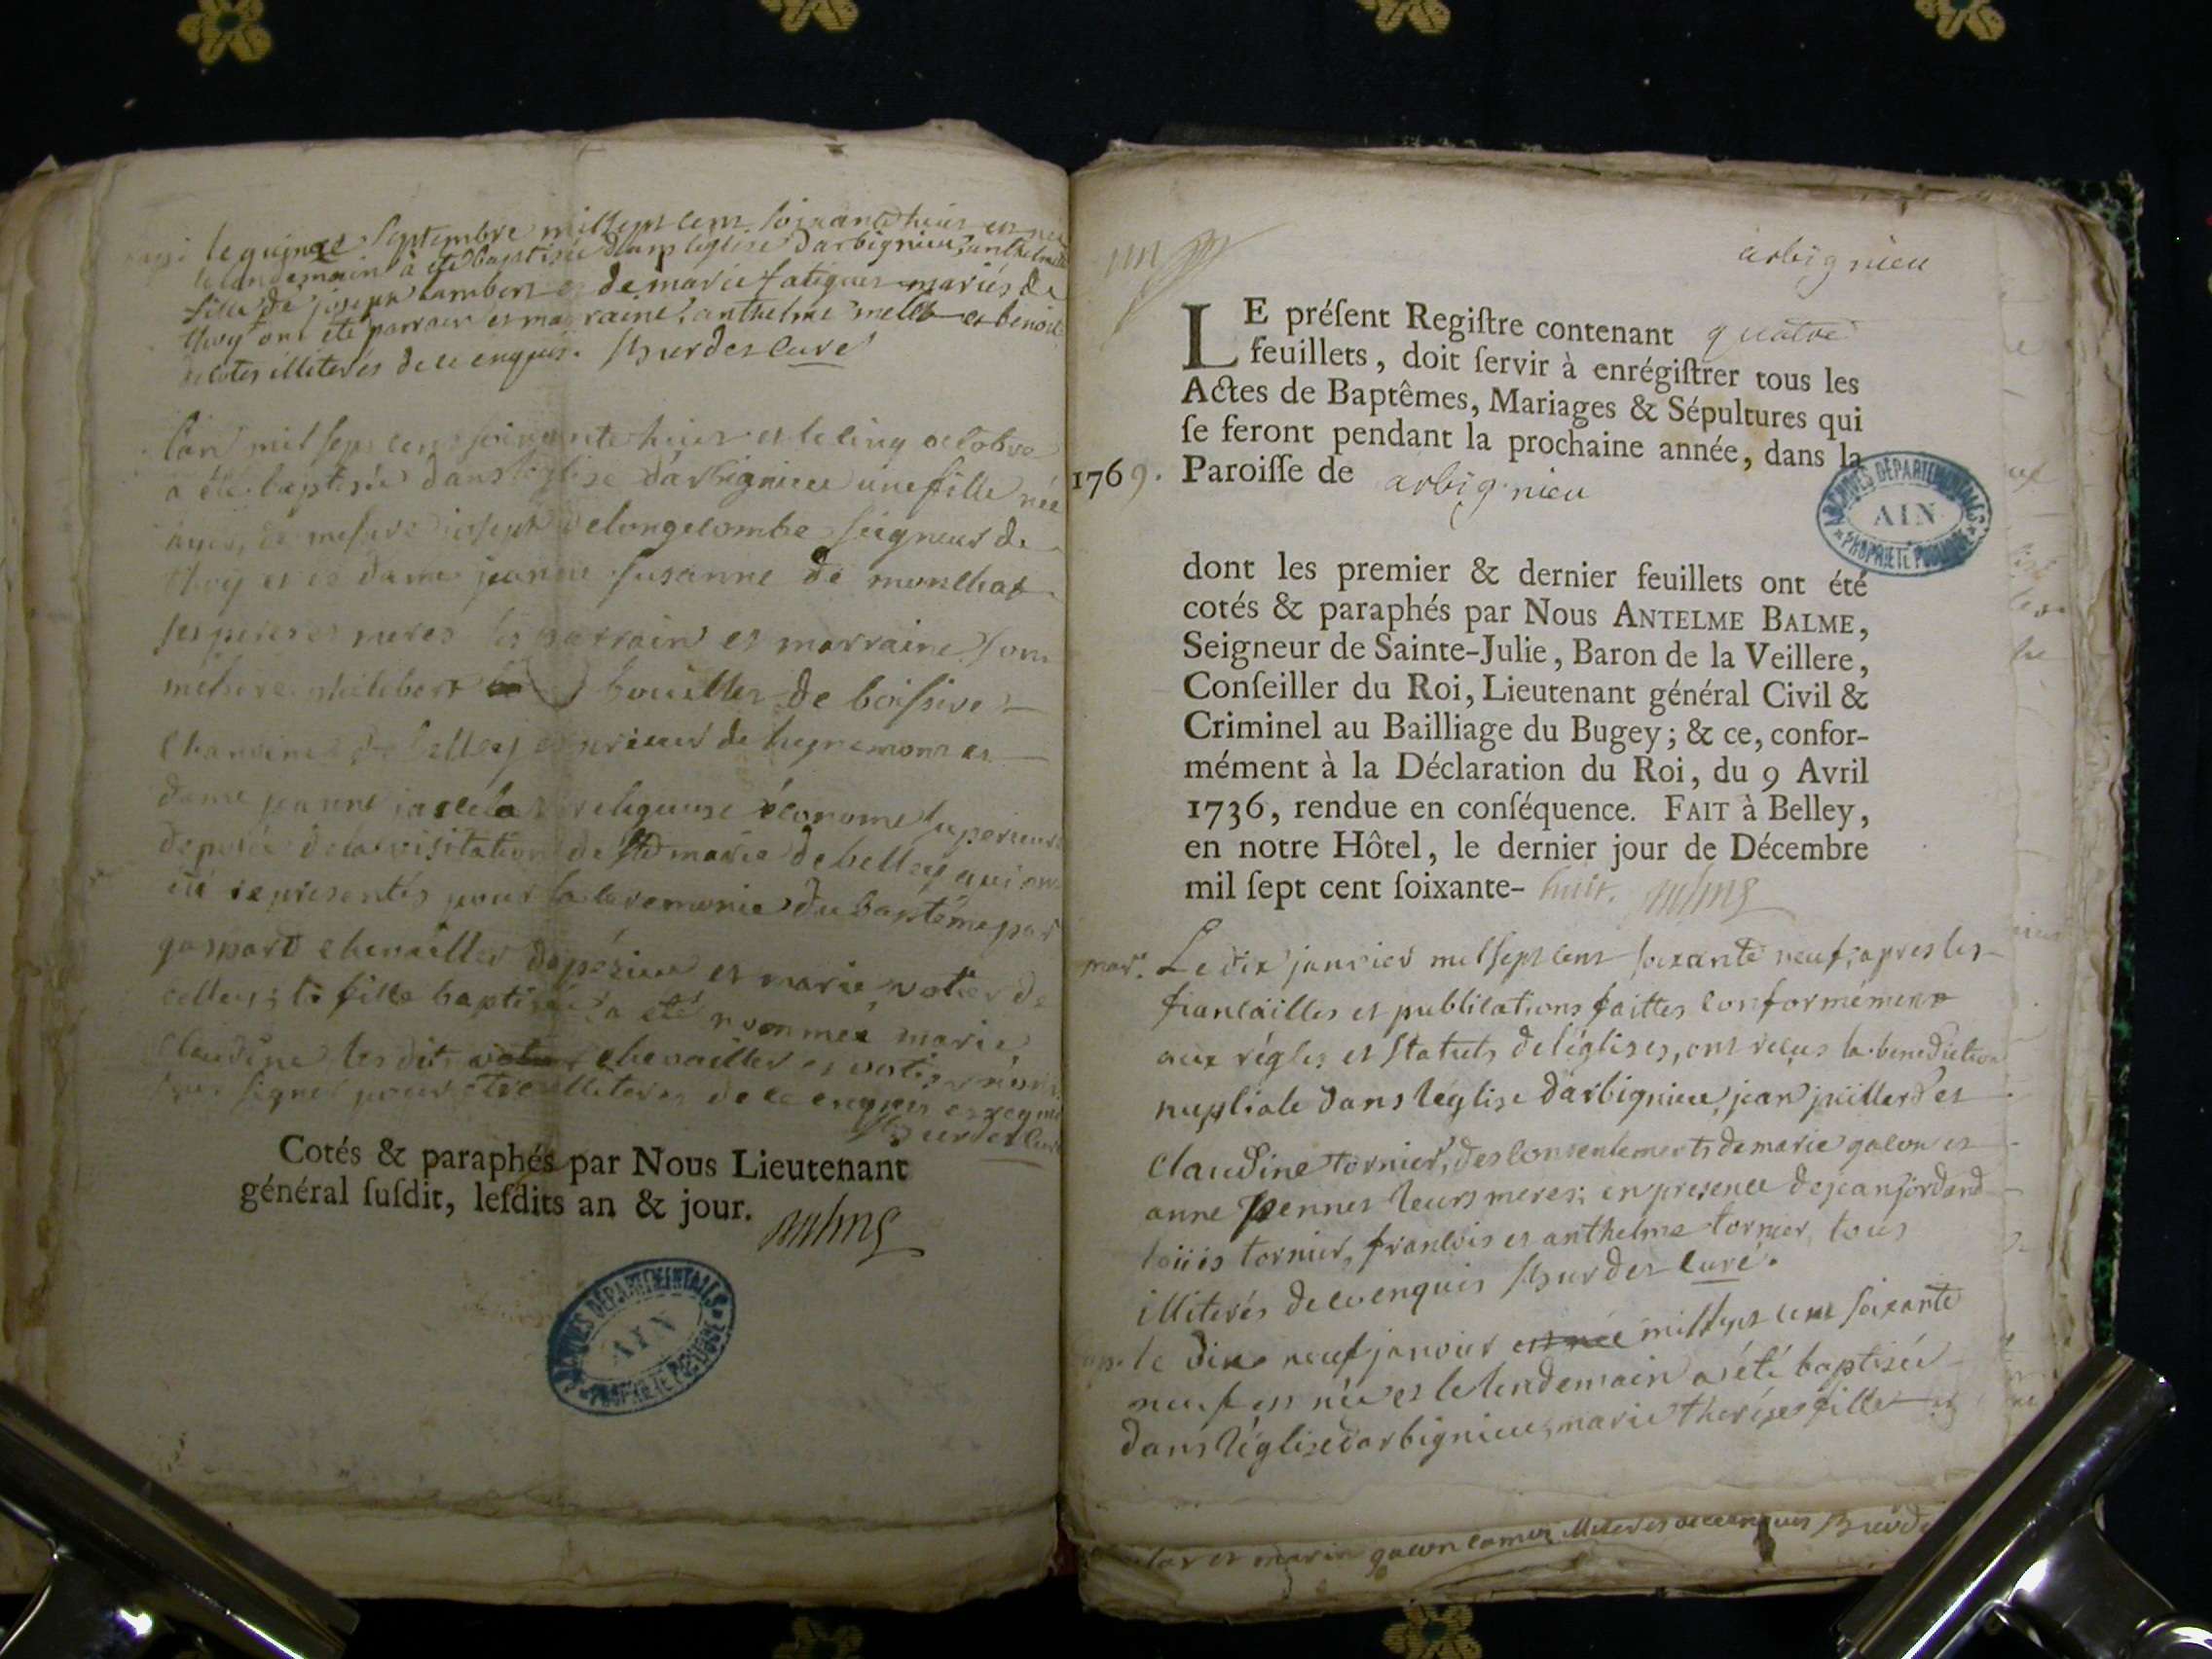 le quinze septembre mil sept cent soixante huit est née
le landemain a été baptisée dans leglise darbignieu, anthelmette
fille de joseph lambert et de marie fatiguet mariés de
thoy ont été parrain et marraine, anthelme mellet et benoite
illiterés de ce enquis. Burdet curé
l'an mil sept cent soixante huit et le cinq octobre
a été baptisée dans l'eglise d'arbignieu une fille née
de messire joseph delongecombe seigneur de
thoy et de dame jeanne susanne de montchat
ses peres et meres les parrain et marraine sont
messire philibert bouillet de boissive
chanoine de belley et prieur de
dame jeanne religieuse économe superieure
deposée de la visitation de Ste marie de belley qui ont
été representés pour la ceremonie du baptême par
gaspard chevailler et marie votier de
celleu; la fille baptisée a été nommée marie
claudine les dits chevailler et votier n'ont
signer pour etre illiteres de ce enquis et
Burdet curé
Cotés & paraphés par Nous Lieutenant
général ſuſdit, leſdits an & jour.
ARCHIVES DÉPARTEMENTALES
AIN
PROPRIÉTÉ PUBLIQUE
arbignieu
LE préſent Regiſtre contenant quatre
feuillets, doit ſervir à enrégiſtrer tous les
Actes de Baptêmes, Mariages & Sépultures qui
ſe feront pendant la prochaine année, dans la
1769. Paroiſſe de arbignieu
ARCHIVES DÉPARTEMENTALES
AIN
PROPRIÉTÉ PUBLIQUE
dont les premier & dernier feuillets ont été
cotés & paraphés par Nous ANTELME BALME,
Seigneur de Sainte-Julie, Baron de la Veillere,
Conſeiller du Roi, Lieutenant général Civil &
Criminel au Bailliage du Bugey; & ce, confor-
mément à la Déclaration du Roi, du 9 Avril
1736, rendue en conſéquence. FAIT à Belley,
en notre Hôtel, le dernier jour de Décembre
mil ſept cent ſoixante- huit.
mar. Le dix janvier mil sept cent soixante neuf, apres les
fiancailles et publications faittes conformément
aux régles et statuts de l'églises, ont reçus la benediction
nuptiale dans l'église d'arbignieu, jean juillerd et
claudine tornier, des consentements de marie galon et
anne pennet leurs meres; en presence de jean jordand
loüis tornier, francois et anthelme tornier, tous
illiterés de ce enquis Burdet curé.
le dix neuf janvier est née mil sept cent soixante
neuf est née et le lendemain a été baptisée
dans l'église d'arbignieu, marie therése fille
et marie galon illiteres de ce enquis